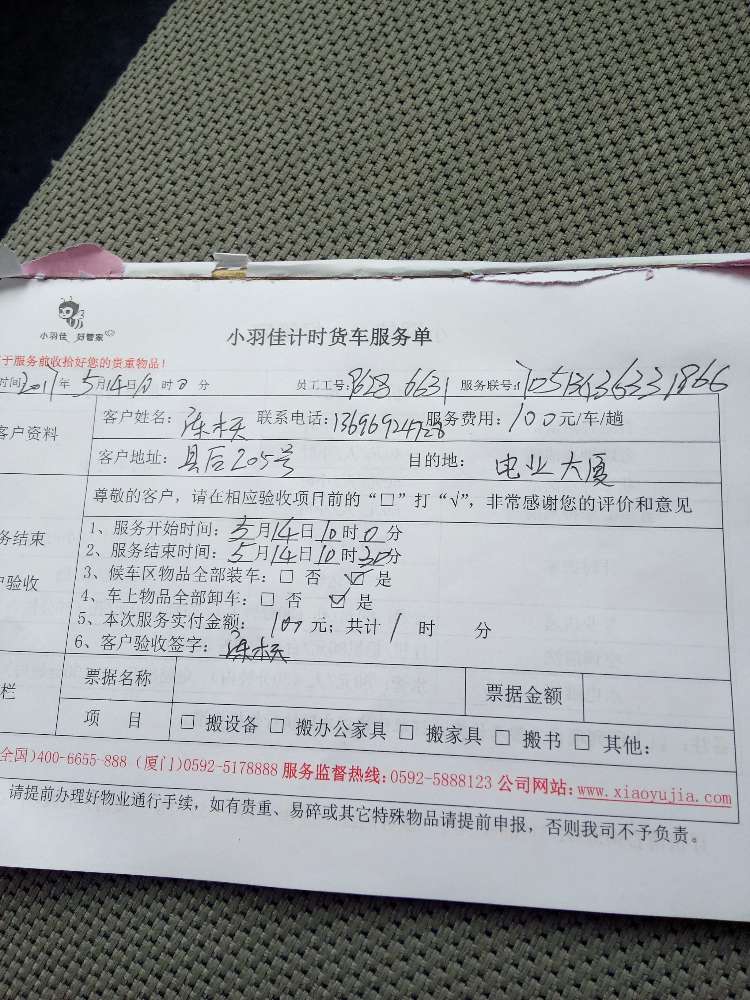 小羽佳 好管家
小羽佳计时货车服务单
于服务前收拾好您的贵重物品！
时间2017年5月14日 时 分 员工工号: 8628 6631 服务联号:
客户资料 客户姓名： 联系电话:13696924728服务费用：100元/车/趟
客户地址：县后205号 目的地： 电业大厦
尊敬的客户，请在相应验收项目前的“□”打“√”，非常感谢您的评价和意见
务结束 1、服务开始时间：5月14日10时0分
2、服务结束时间：5月14日10时30分
户验收 3、候车区物品全部装车：□ 否 ☑ 是
4、车上物品全部卸车：□ 否 ☑ 是
5、本次服务实付金额： 100元；共计 1 时 分
6、客户验收签字：
栏 票据名称 票据金额
项 目 □ 搬设备 □ 搬办公家具 □ 搬家具 □ 搬书 □ 其他：
全国)400-6655-888 (厦门)0592-5178888 服务监督热线:0592-5888123 公司网站:www.xiaoyujia.com
请提前办理好物业通行手续，如有贵重、易碎或其它特殊物品请提前申报，否则我司不予负责。